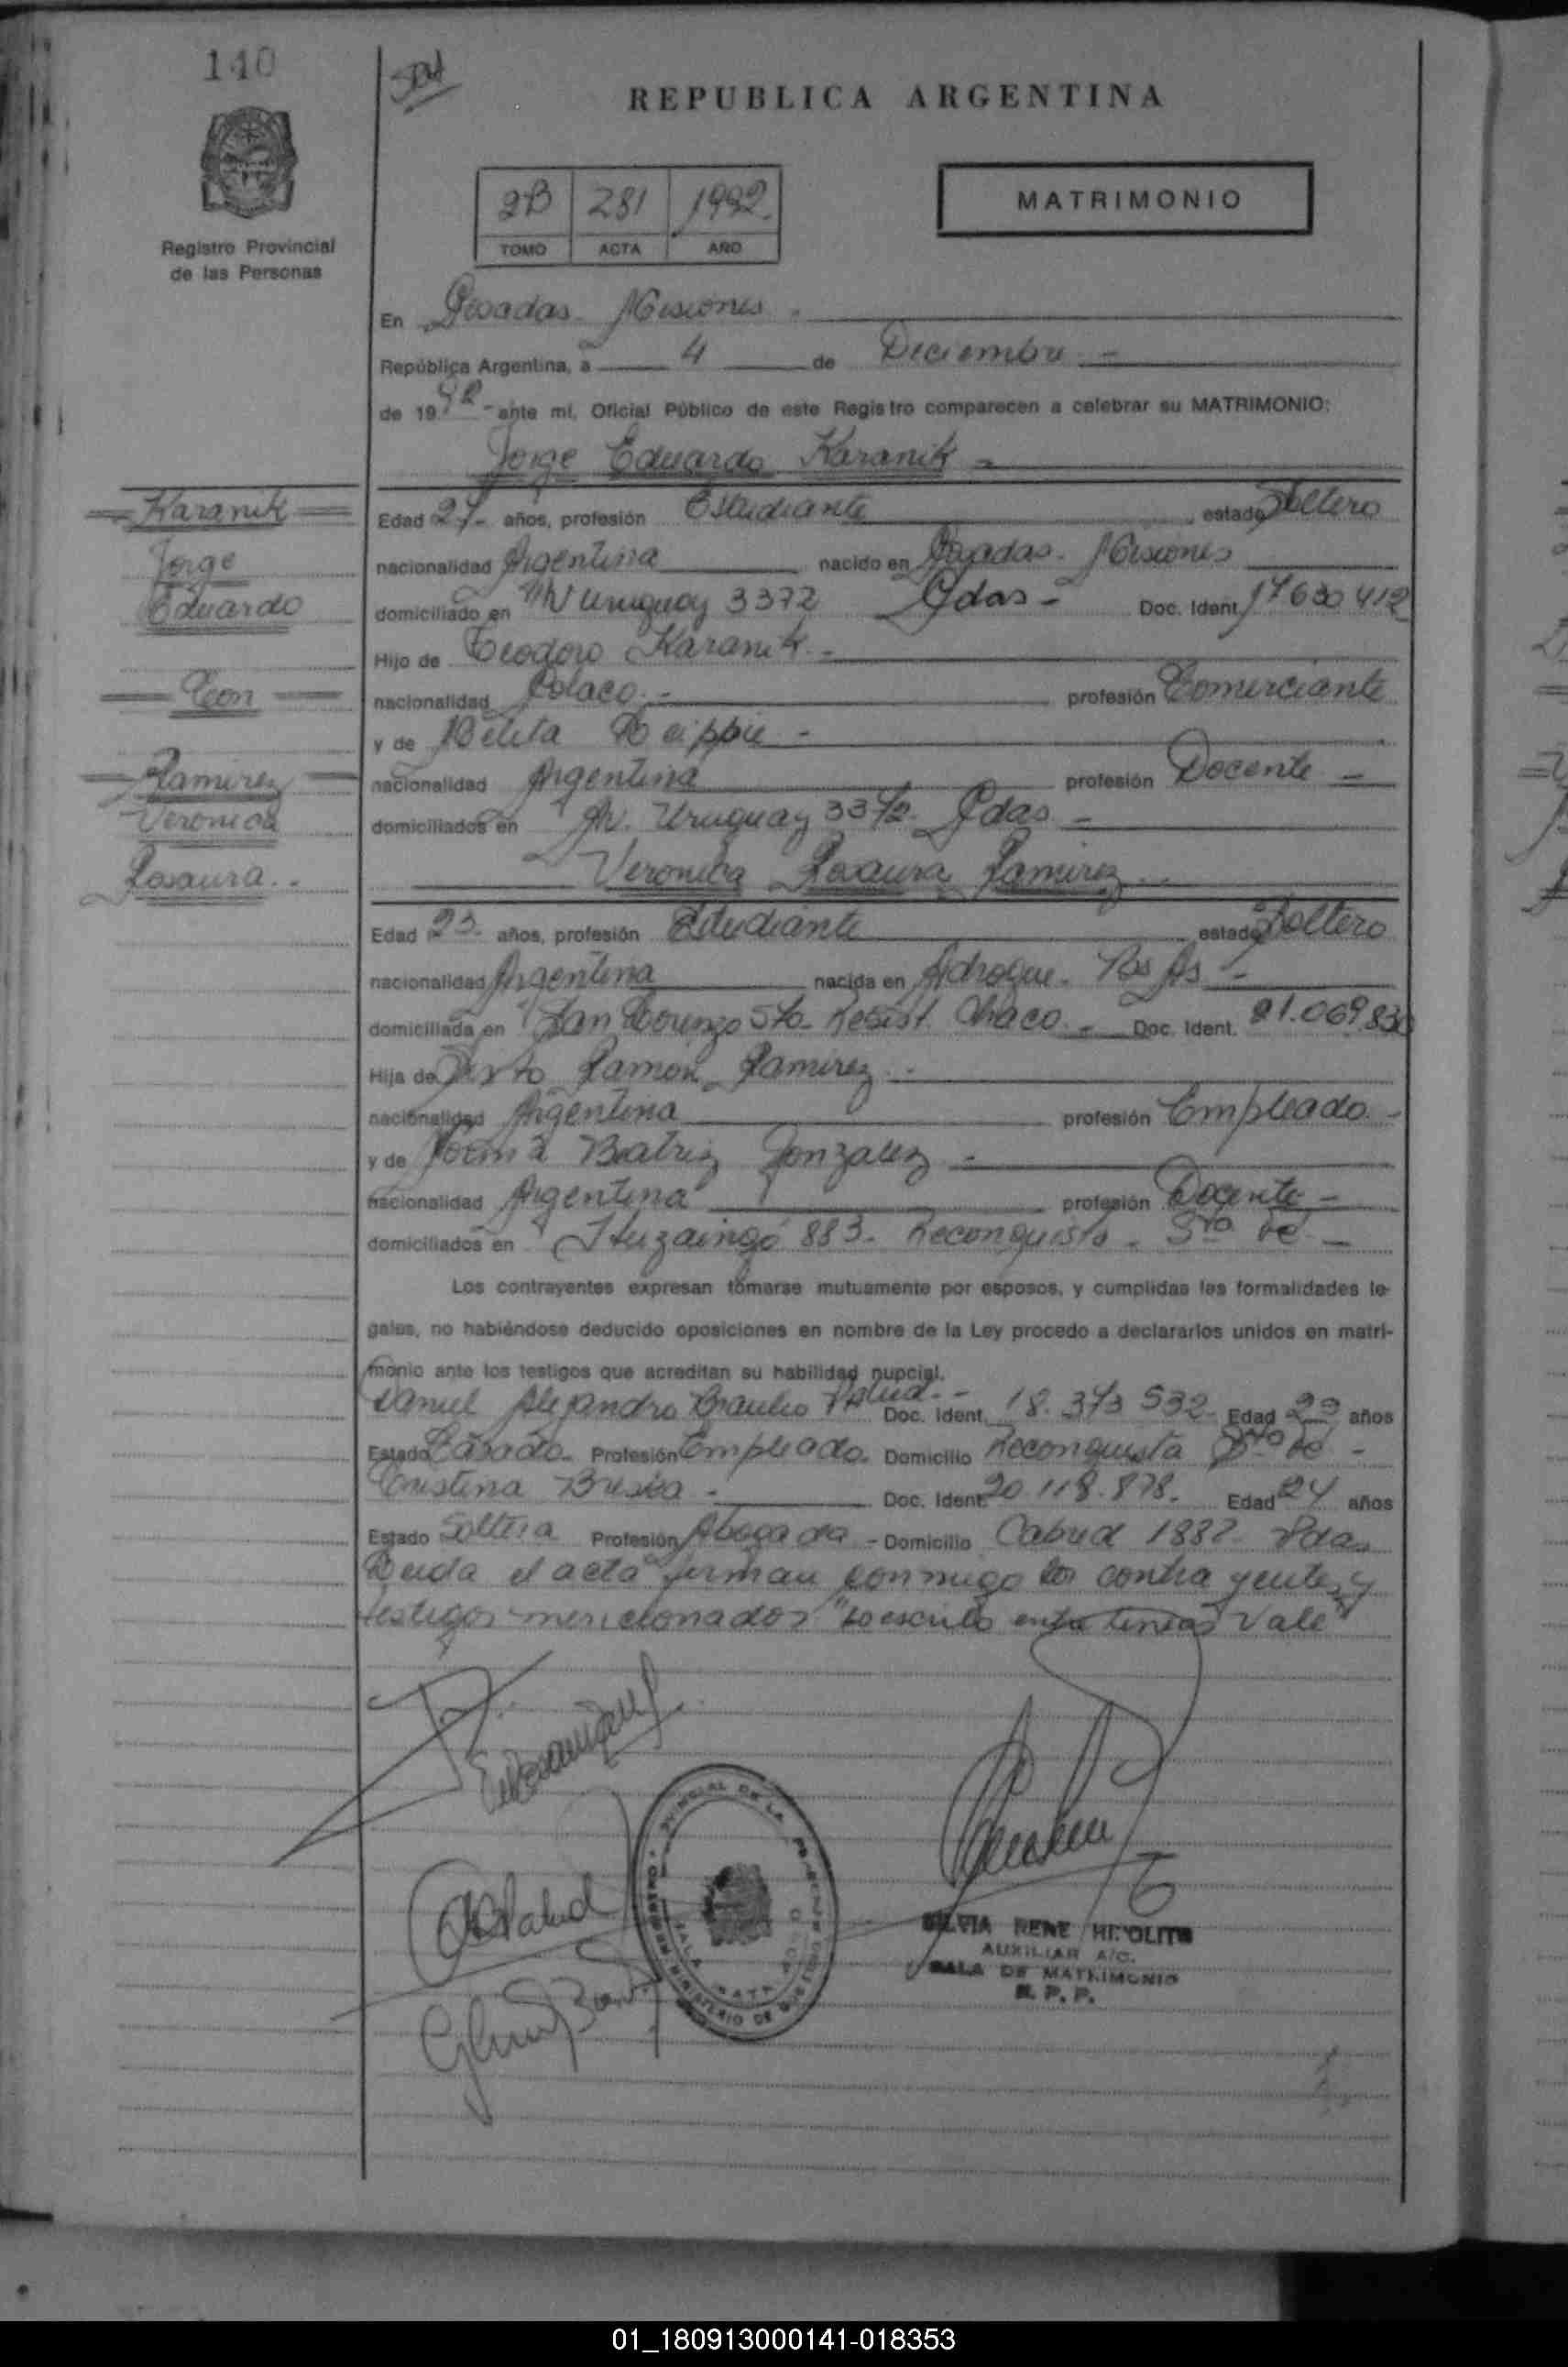 140
REPUBLICA ARGENTINA
2B 281 1992
TOMO ACTA AÑO
MATRIMONIO
Registro Provincial
de las Personas
En Posadas Misiones
República Argentina, a 4 de Diciembre
de 1992 ante mí, Oficial Público de este Registro comparecen a celebrar su MATRIMONIO:
Jorge Eduardo Karanik
Karanik
Jorge
Eduardo
Con
Ramirez
Veronica
Rosaura
Edad 27 años, profesión Estudiante estado Soltero
nacionalidad Argentina nacido en Posadas. Misiones
domiciliado en Av Uruguay 3372 Pdas - Doc. Ident. 17630412
Hijo de Teodoro Karanik -
nacionalidad Polaco. - profesión Comerciante
y de Belita
nacionalidad Argentina profesión Docente -
domiciliados en Av. Uruguay 3372. Pdas -
Veronica Rosaura Ramirez
Edad 23 años, profesión Estudiante estado Soltero
nacionalidad Argentina nacida en Adrogue. Bs As -
domiciliada en San Lorenzo Resist. Chaco. - Doc. Ident. 21.069.830
Hija de Sixto Ramon Ramirez
nacionalidad Argentina profesión Empleado. -
y de Beatriz Gonzalez -
nacionalidad Argentina profesión Docente -
domiciliados en Ituzaingó 883. Reconquista. Sta Fé. -
Los contrayentes expresan tomarse mutuamente por esposos, y cumplidas las formalidades le-
gales, no habiéndose deducido oposiciones en nombre de la Ley procedo a declararlos unidos en matri-
monio ante los testigos que acreditan su habilidad nupcial.
Daniel Alejandro Braulio Doc. Ident. 18.373.532 Edad 23 años
Estado Casado. Profesión Empleado. Domicilio Reconquista Sta Fé -
Cristina Doc. Ident. 20.118.878. Edad 24 años
Estado Soltera Profesión Abogada - Domicilio Cabred 1882 Pdas
Leida el acta firman conmigo los contrayentes y
testigos mencionados "Lo escrito entre lineas Vale"
SILVIA RENE HIPOLITO
AUXILIAR A/C.
SALA DE MATRIMONIO
R. P. P.
01_180913000141-018353